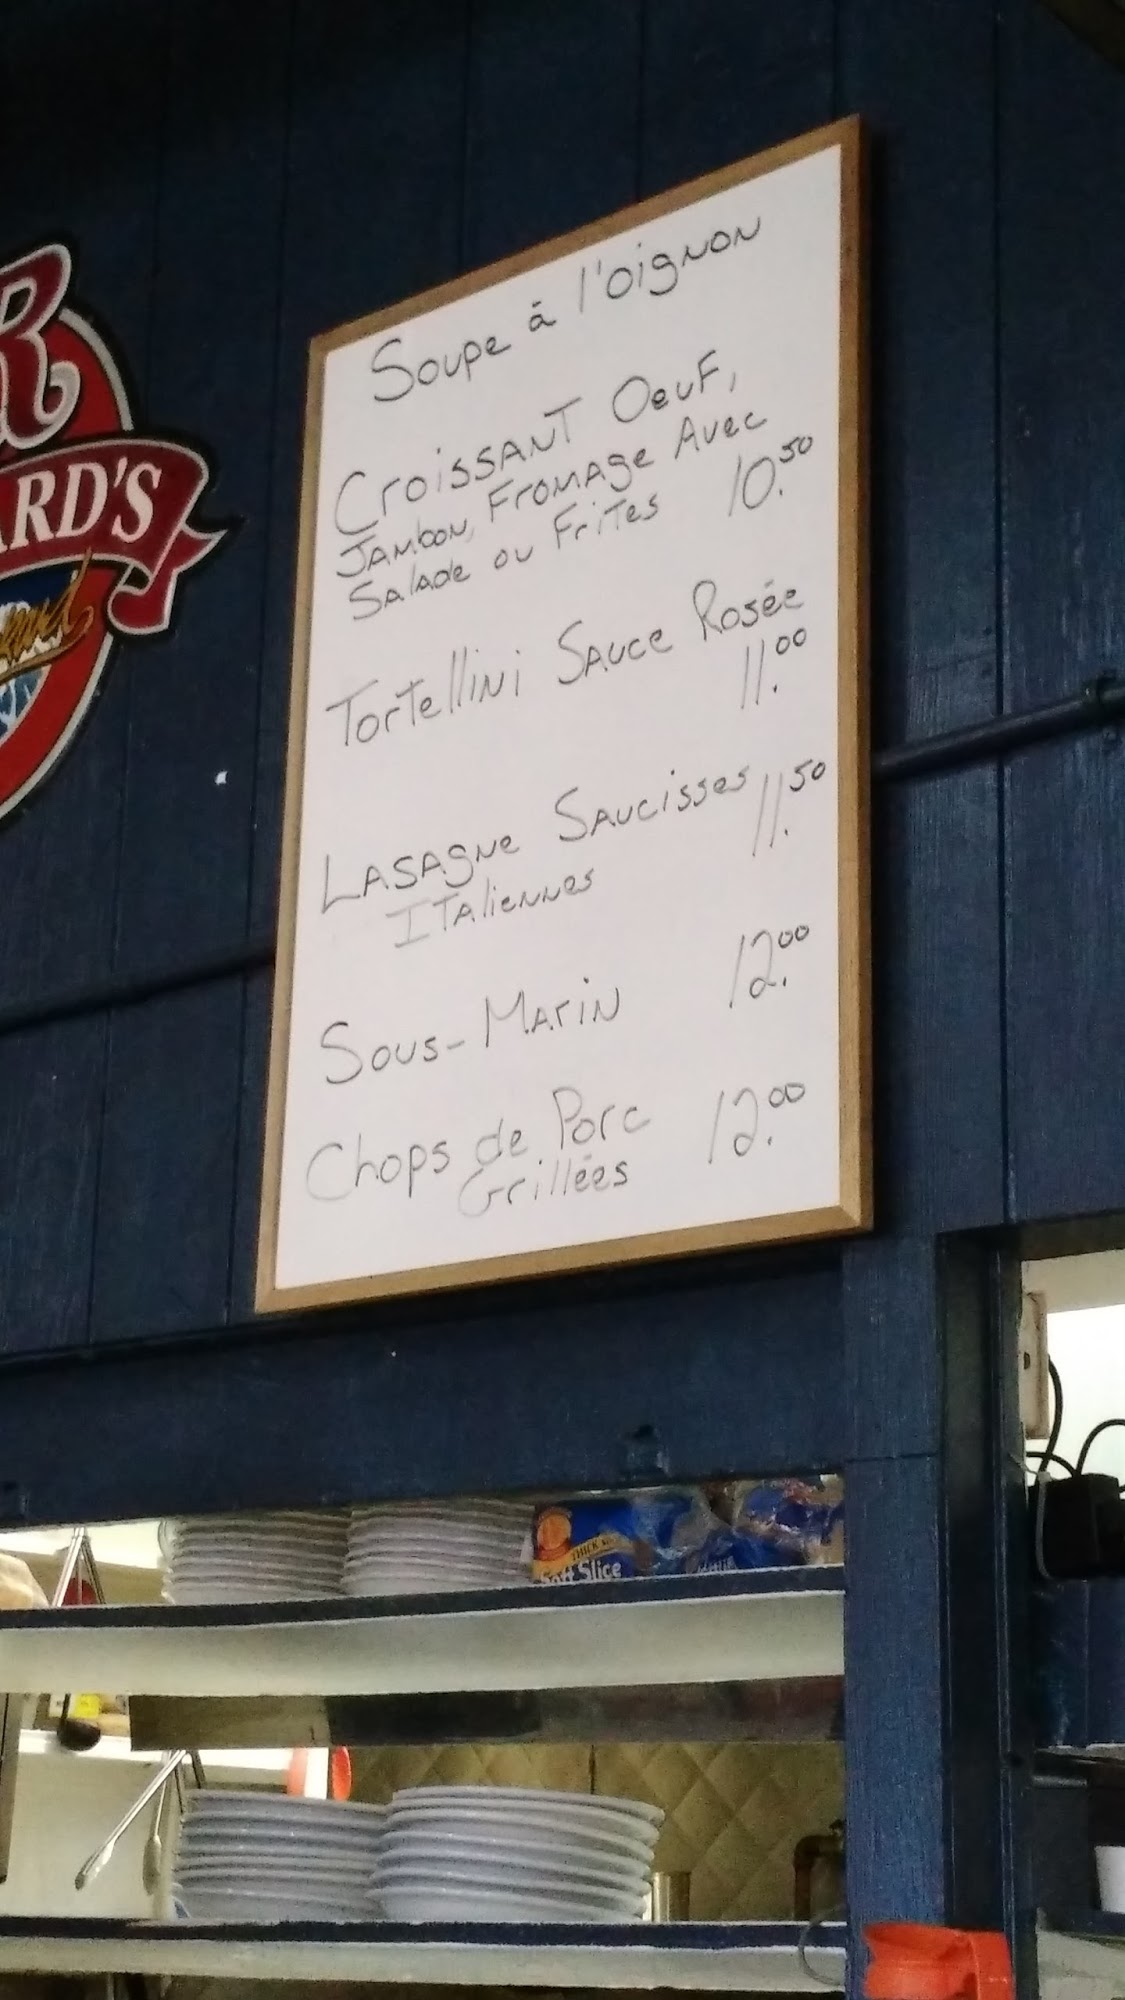 Soupe à l'oignon
Croissant Oeuf,
Jambon, Fromage Avec
Salade ou Frites 10.50
Tortellini Sauce Rosée
11.00
Lasagne Saucisses 11.50
Italiennes
Sous-Marin 12.00
Chops de Porc 12.00
Grillées
R
ARD'S
THICK
Soft Slice